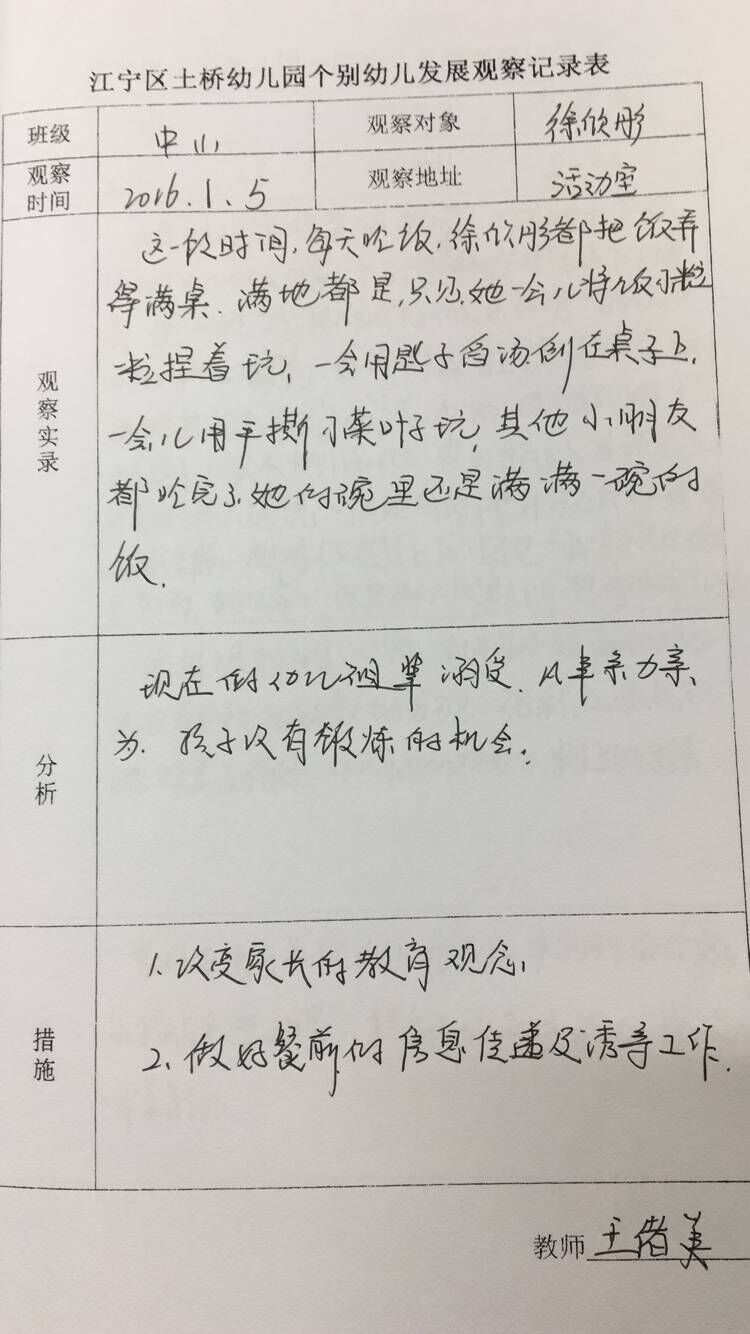 江宁区土桥幼儿园个别幼儿发展观察记录表
班级 中小 观察对象 徐欣彤
观察时间 2016.1.5 观察地址 活动室
观察实录
这一段时间,每天吃饭,徐欣彤都把饭弄
得满桌.满地都是,只见她一会儿将饭米粒
粒捏着玩,一会用匙子舀汤倒在桌子上,
一会儿用手撕了菜叶子玩,其他小朋友
都吃完了,她的碗里还是满满一碗的
饭.
分析
现在的幼儿祖辈溺爱.凡事亲力亲
为.孩子没有锻炼的机会.
措施
1.改变家长的教育观念,
2.做好餐前的信息传递及诱导工作.
教师 王 美